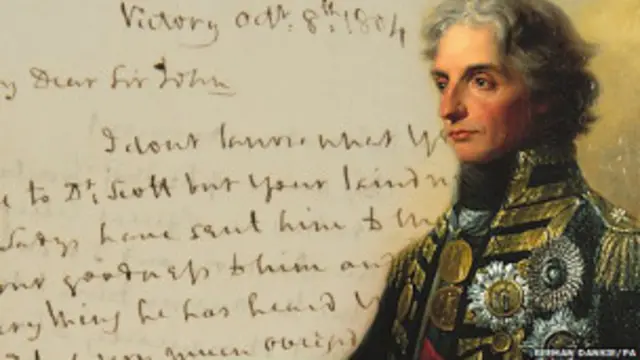 Victory Octr. 8th. 1804
y Dear Sir John
I dont know what y
e to Dr. Scott but your kind
Ladys have sent him to
our goodness to him and
erything he has heard
very much